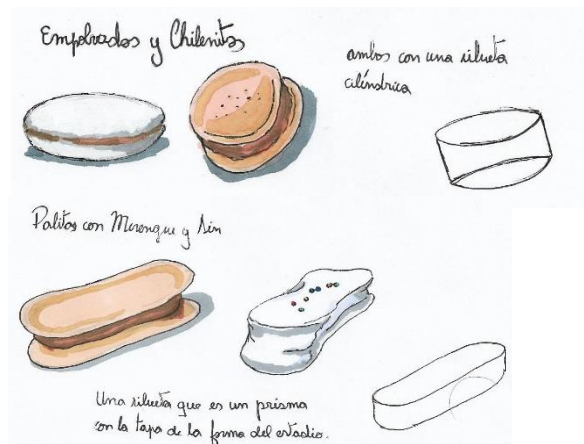 Empolvados y Chilenitos
ambos con una silueta
cilíndrica
Palitos con Merengue y Sin
Una silueta que es un prisma
con la tapa de la forma del estadio.